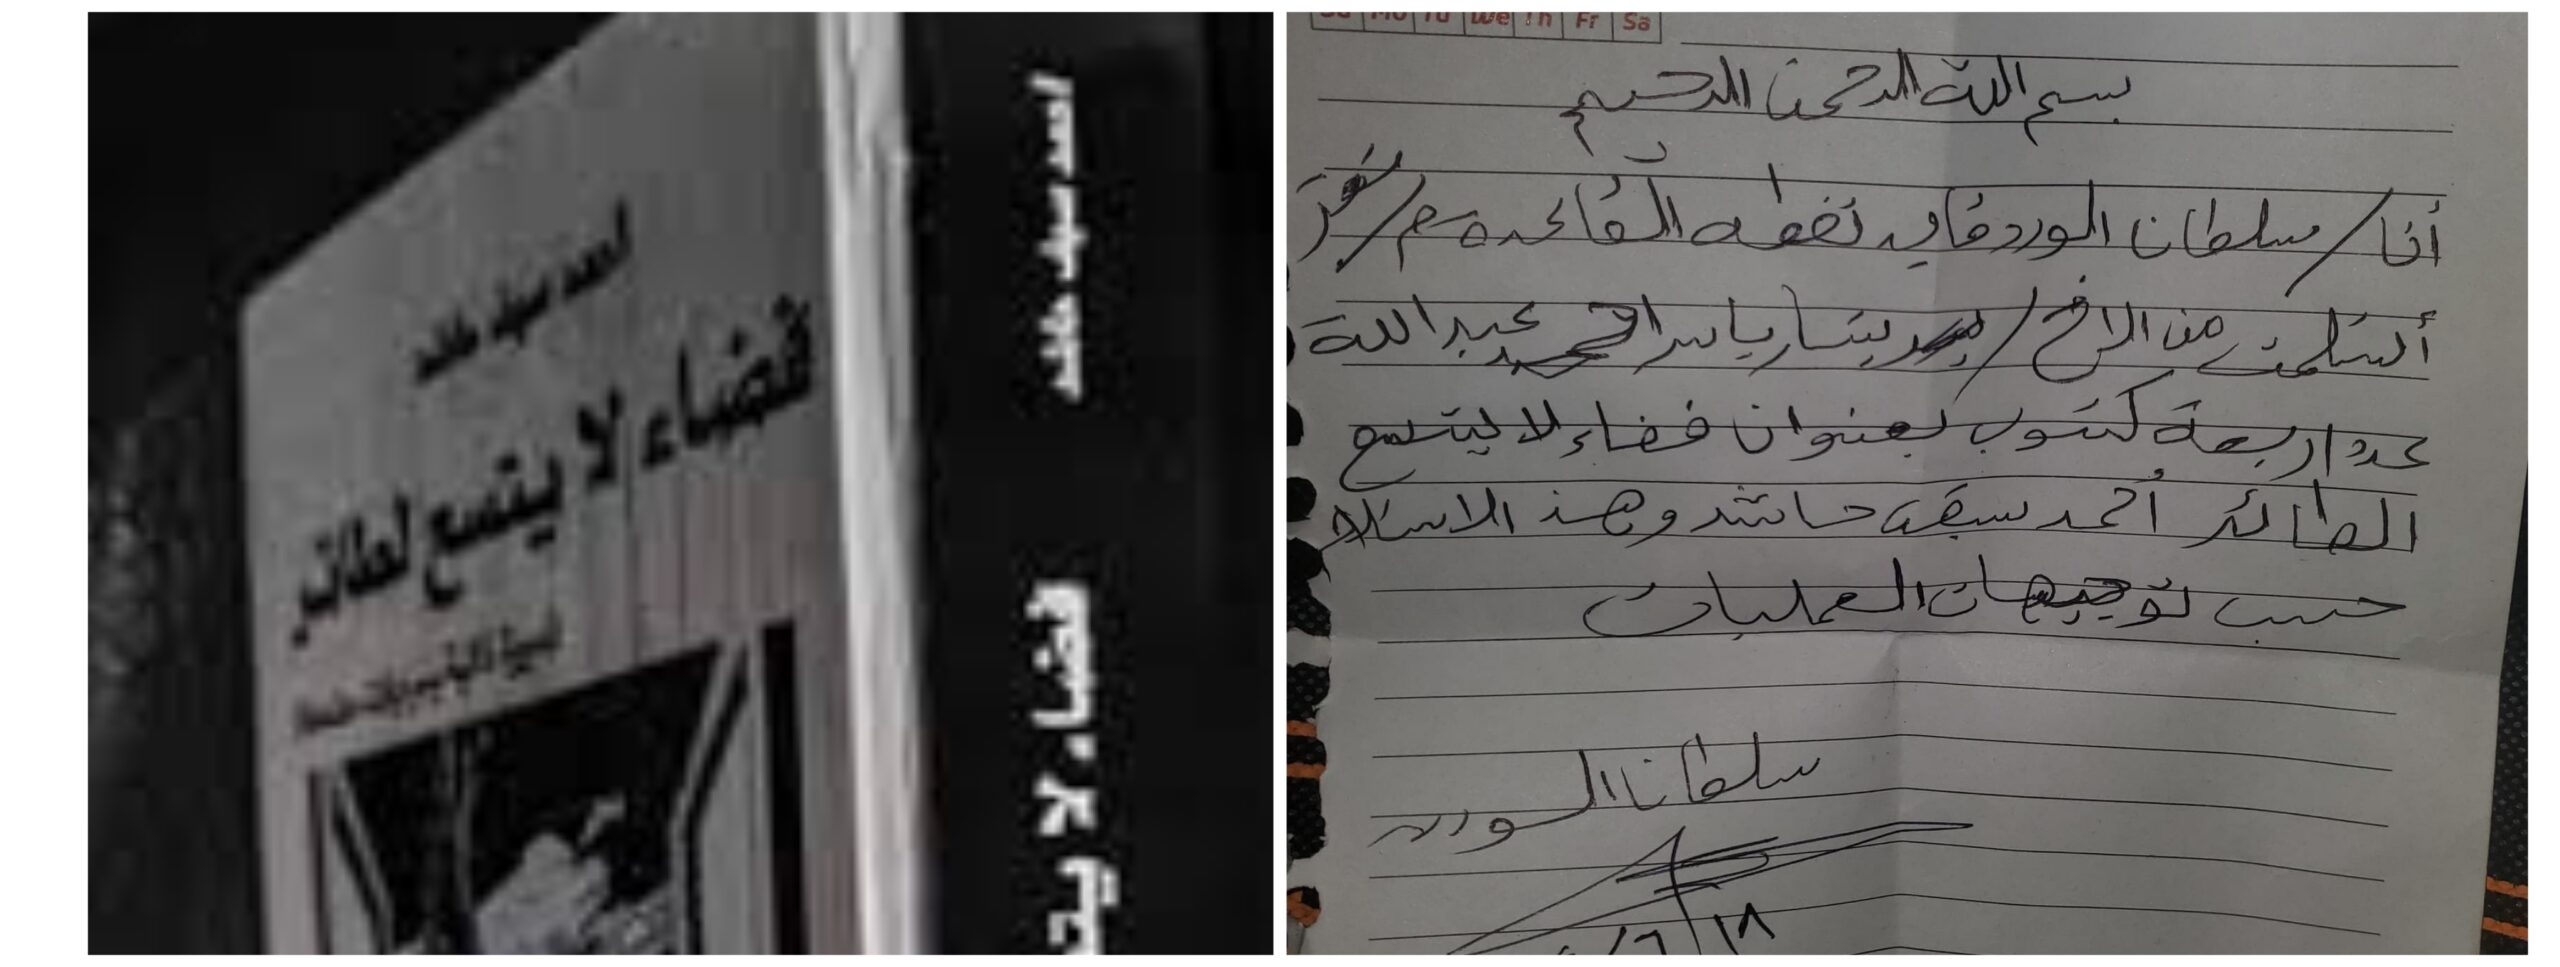 احمد سيف حاشد
فضاء لا يتسع لطائر
احمد سيف حاشد
فضاء لا يتـ
Su Mo Tu We Th Fr Sa
بسم الله الرحمن الرحيم
أنا / سلطان الورد في نقطه القاعده م / تعز
أستلمت من الاخ / بشار ياسر احمد عبدالله
عدد اربعة كتوب بعنوان فضاء لا يتسع
الطائر أحمد سيف حاشد وهذ الاستلام
حسب توجيهات العمليات
سلطان الورد
١٨ / ٦ /